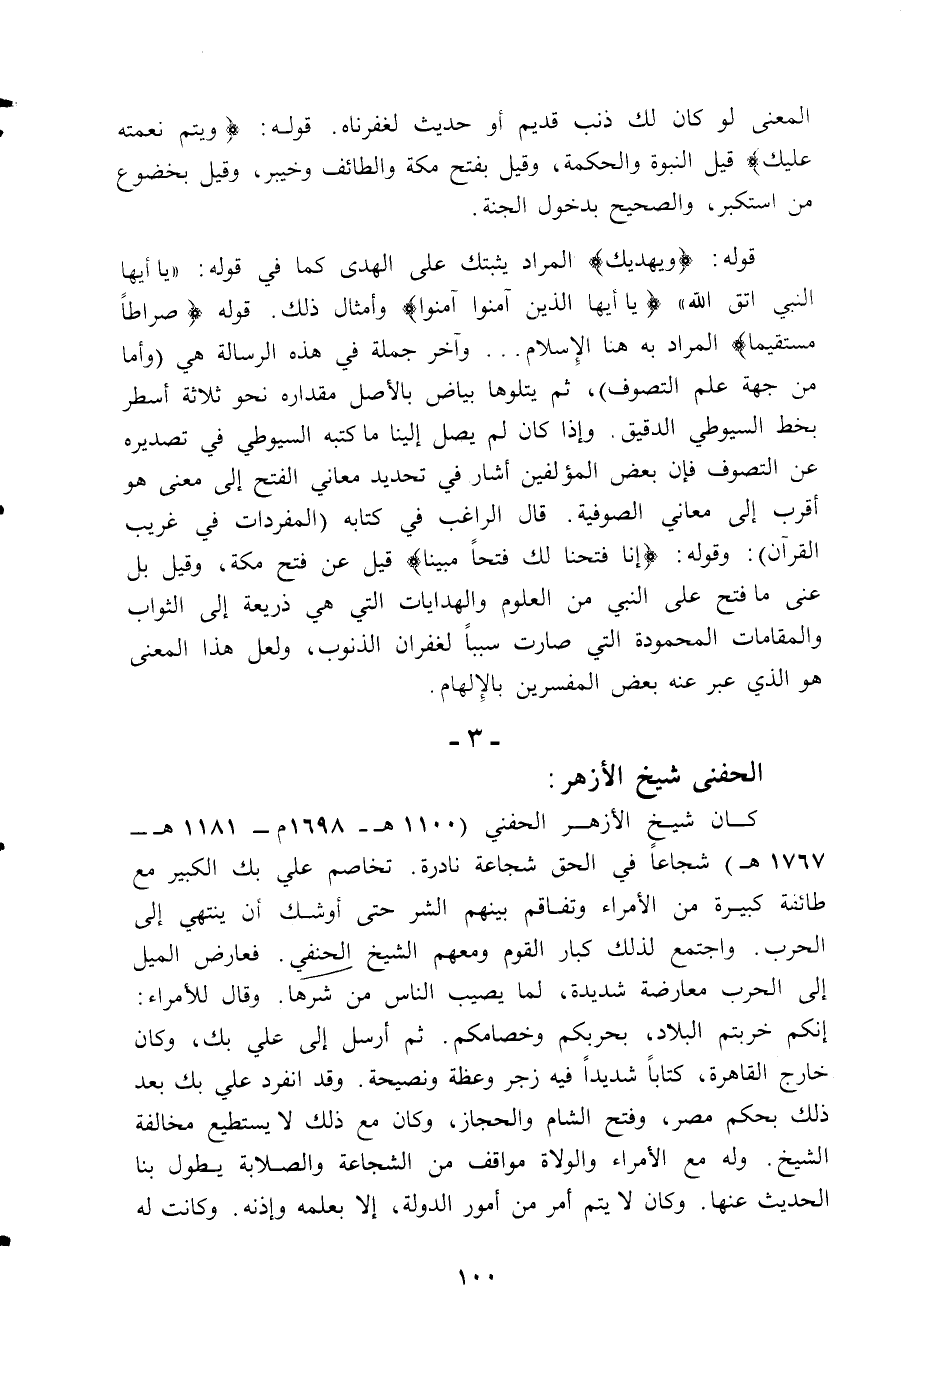 المعنى لو كان لك ذنب قديم أو حديث لغفرناه. قوله: ﴿ويتم نعمته
عليك﴾ قيل النبوة والحكمة، وقيل بفتح مكة والطائف وخيبر، وقيل بخضوع
من استكبر، والصحيح بدخول الجنة.
قوله: ﴿ويهديك﴾ المراد يثبتك على الهدى كما في قوله: «يا أيها
النبي اتق الله» ﴿يا أيها الذين آمنوا آمنوا﴾ وأمثال ذلك. قوله ﴿صراطاً
مستقيما﴾ المراد به هنا الإسلام... وآخر جملة في هذه الرسالة هي (وأما
من جهة علم التصوف)، ثم يتلوها بياض بالأصل مقداره نحو ثلاثة أسطر
بخط السيوطي الدقيق. وإذا كان لم يصل إلينا ما كتبه السيوطي في تصديره
عن التصوف فإن بعض المؤلفين أشار في تحديد معاني الفتح إلى معنى هو
أقرب إلى معاني الصوفية. قال الراغب في كتابه (المفردات في غريب
القرآن): وقوله: ﴿إنا فتحنا لك فتحاً مبينا﴾ قيل عن فتح مكة، وقيل بل
عنى ما فتح على النبي من العلوم والهدايات التي هي ذريعة إلى الثواب
والمقامات المحمودة التي صارت سبباً لغفران الذنوب، ولعل هذا المعنى
هو الذي عبر عنه بعض المفسرين بالإلهام.
- ٣ -
الحفنى شيخ الأزهر:
كان شيخ الأزهر الحفني (١١٠٠ هـ - ١٦٩٨م - ١١٨١ هـ -
١٧٦٧ هـ) شجاعاً في الحق شجاعة نادرة. تخاصم علي بك الكبير مع
طائفة كبيرة من الأمراء وتفاقم بينهم الشر حتى أوشك أن ينتهي إلى
الحرب. واجتمع لذلك كبار القوم ومعهم الشيخ الحنفي. فعارض الميل
إلى الحرب معارضة شديدة، لما يصيب الناس من شرها. وقال للأمراء:
إنكم خربتم البلاد، بحربكم وخصامكم. ثم أرسل إلى علي بك، وكان
خارج القاهرة، كتاباً شديداً فيه زجر وعظة ونصيحة. وقد انفرد علي بك بعد
ذلك بحكم مصر، وفتح الشام والحجاز، وكان مع ذلك لا يستطيع مخالفة
الشيخ. وله مع الأمراء والولاة مواقف من الشجاعة والصلابة يطول بنا
الحديث عنها. وكان لا يتم أمر من أمور الدولة، إلا بعلمه وإذنه. وكانت له
١٠٠